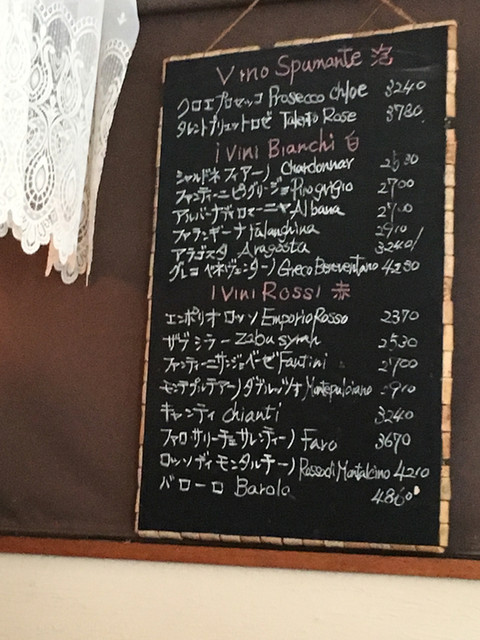 Vino Spumante 泡
クロエプロセッコ Prosecco chloe 3240
タレントブリュットロゼ Talento Rose 3780
i Vini Bianchi 白
シャルドネ フィアーノ Chardonnay
ファンティーニ ピノグリージョ Pinogrigio 2700
アルバーナディロマーニャ Albana
ファランギーナ falanghina
アラゴスタ Aragosta 3240
グレコ ベネヴェンターノ Greco Beneventano
i Vini Rossi 赤
エンポリオ ロッソ Emporio Rosso 2370
ザブ シラー Zabu syrah 2530
ファンティーニ サンジョベーゼ Fantini 2700
モンテプルチアーノ ダブルッツォ Montepulciano
キャンティ chianti 3240
ファロ サリーチェサレンティーノ Faro 3670
ロッソ ディ モンタルチーノ Rosso di Montalcino 4210
バローロ Barolo 4860